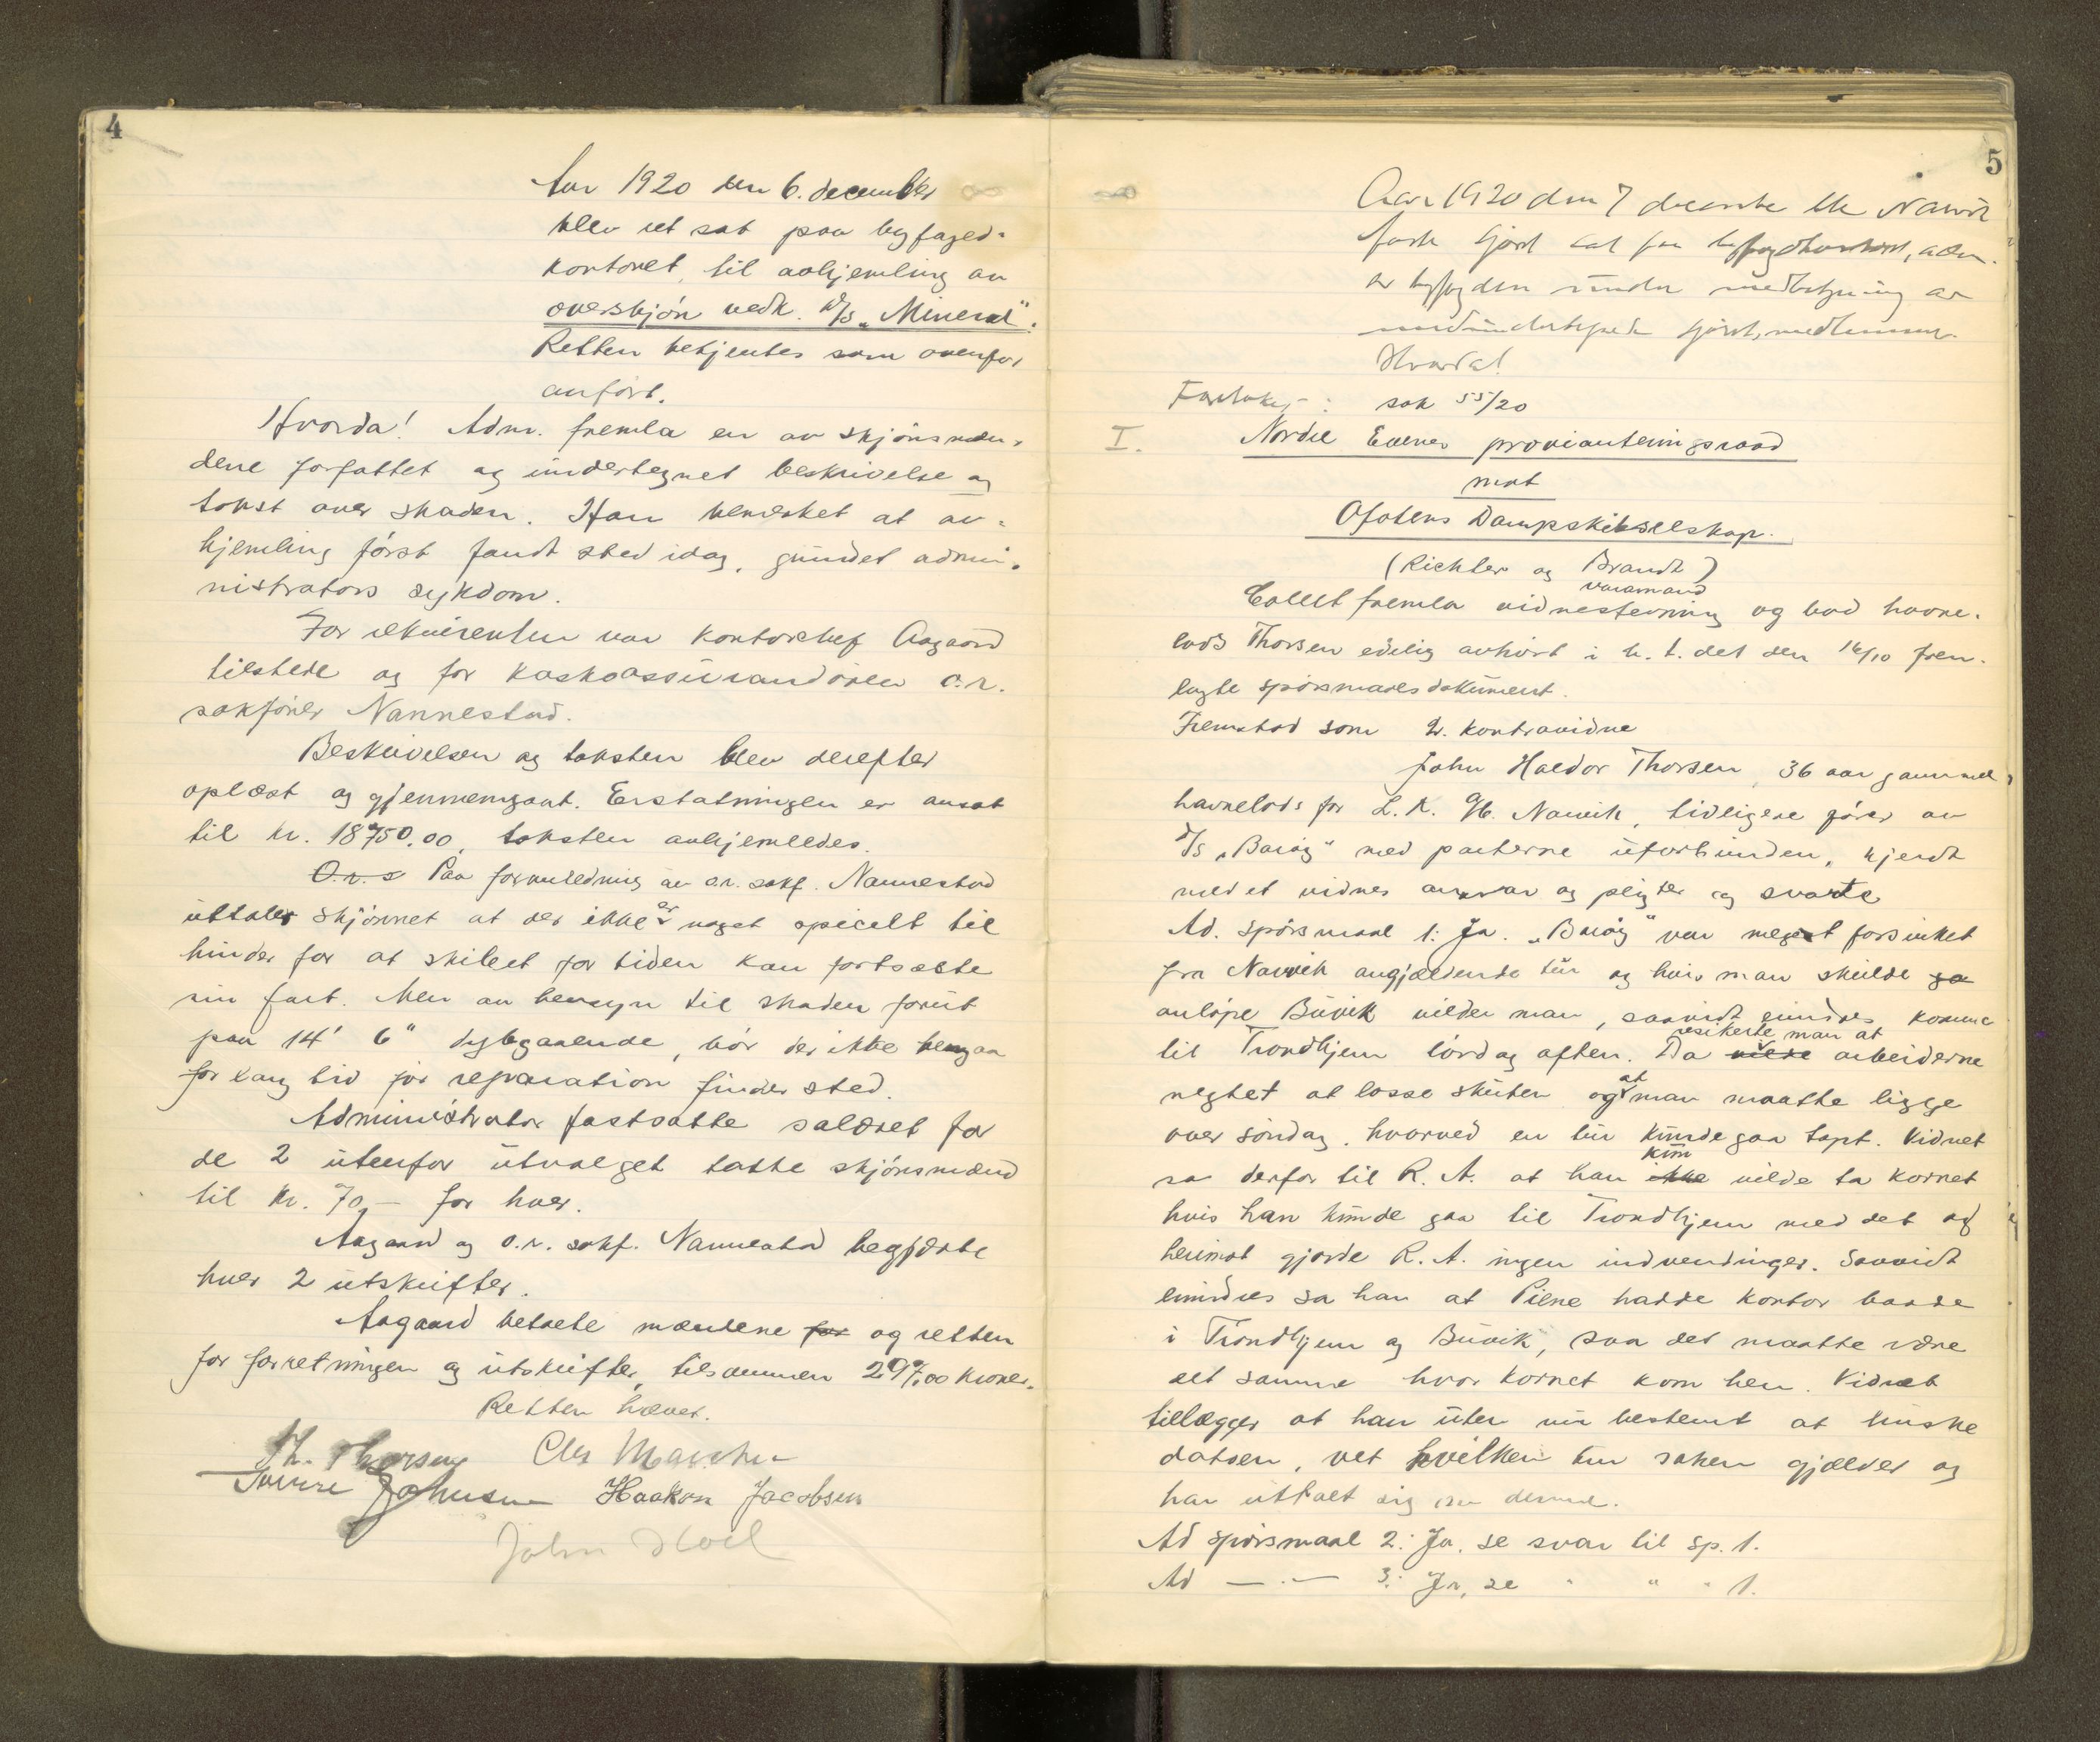 4
Aar 1920 den 6. december
blev ret sat paa byfoged-
kontoret, til avhjemling av
overskjön vedk. d/s „Mineral".
Retten betjentes som ovenfor
anfört.
Hvorda! Adm. fremla en av skjönsmæn-
dene forfattet og undertegnet beskrivelse og
takst over skaden. Han bemerket at av-
hjemling först fandt sted idag, grundet admi-
nistrators sykdom.
For rekvirenten var kontorchef Aagaard
tilstede og for kaskoassurandören o.r.
sakförer Nannestad.
Beskrivelsen og taksten blev derefter
oplæst og gjennemgaat. Erstatningen er ansat
til kr. 18750.00, taksten avhjemledes.
O.r. s Paa foranledning av o.r. sakf. Nannestad
uttaler skjönnet at der ikke er noget specielt til
hinder for at skibet for tiden kan fortsætte
sin fart. Men av hensyn til skaden forut
paa 14' 6" dypgaaende, bör der ikke hengaa
for lang tid för reparation finder sted.
Administrator fastsatte salæret for
de 2 utenfor utvalget tatte skjönsmænd
til kr. 70,- for hver.
Aagaard og o.r. sakf. Nannestad begjærte
hver 2 utskrifter.
Aagaard betalte mændene for og retten
for forretningen og utskrifter, tilsammen 297.00 kroner.
Retten hævet.
Th. Thorsen Chr March
Sverre Johnsen Haakon Jacobsen
John Hoel
5
Aar 1920 den 7 december ble Narvik
faste sjöret sat paa byfogdkontoret, adm.
av byfogden under medbetjening av
medundertegnede sjöretsmedlemmer.
Hvorda!
Foretokes: sak 55/20
I. Nordre Evenes provianteringsraad
mot
Ofotens Dampskibsselskap.
(Richter og Brandt)
varamand
Collet fremla vidnestevning og bad havne-
lods Thorsen edelig avhört i h. t. det den 16/10 frem-
lagte spörsmaalsdokument.
Fremstod som 2. kontravidne
John Haldor Thorsen, 36 aar gammel,
havnelods for L.K. Gb. Narvik, tidligere förer av
d/s „Baröy" med parterne uforbunden, kjendt
med et vidnes ansvar og pligter og svarte
Ad. spörsmaal 1: Ja. „Baröy" var meget forsinket
fra Narvik angjældende tur og hvis man skulde ga
anlöpe Buvik vilde man, saavidt erindres komme
resikerte man at
til Trondhjem lördag aften. Da vilde arbeiderne
negtet at losse skuten og at man maatte ligge
over söndag, hvorved en tur kunde gaa tapt. Vidnet
kun
sa derfor til R. A. at han ikke vilde ta kornet
hvis han kunde gaa til Trondhjem med det og
herimot gjorde R. A. ingen indvendinger. Saavidt
erindres sa han at Piene hadde kontor baade
i Trondhjem og Buvik, saa det maatte være
det samme hvor kornet kom hen. Vidnet
tillægger at han uten nu bestemt at huske
datoen, vet hvilken tur saken gjælder og
har uttalt sig om denne.
Ad spörsmaal 2: Ja, se svar til sp. 1.
Ad — · — 3: Ja, se " " " 1.